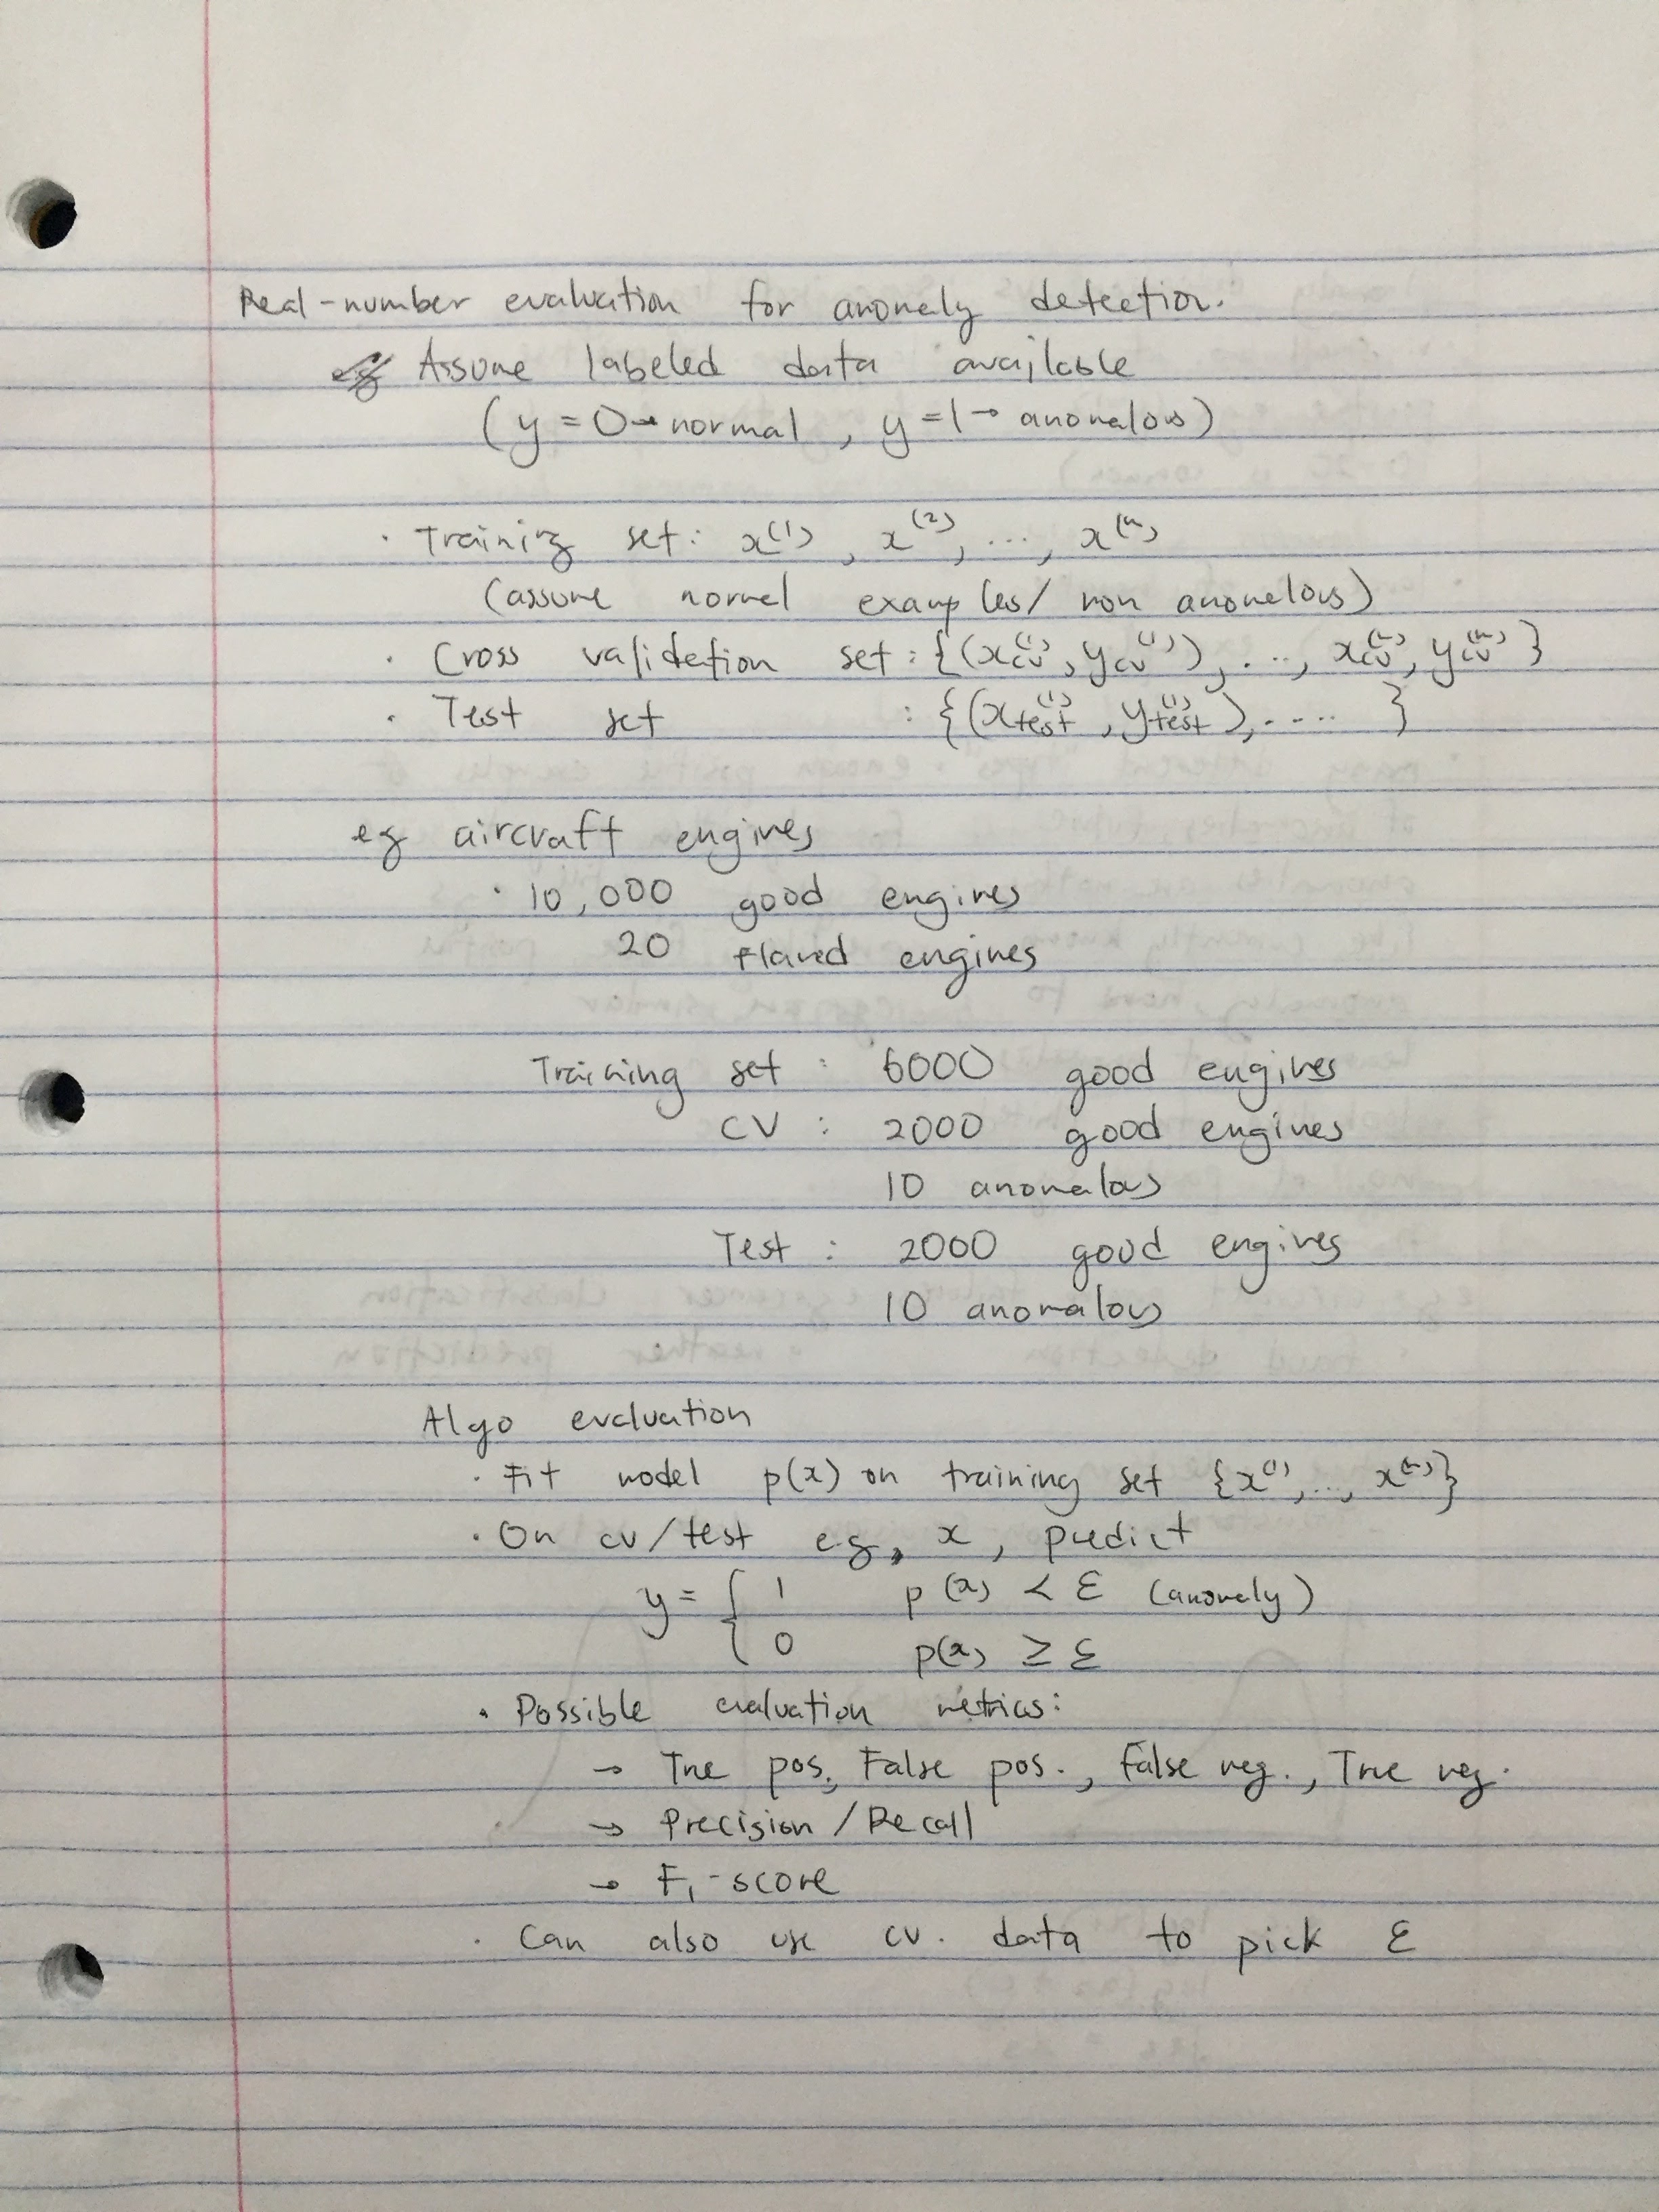 Real-number evaluation for anomaly detection.
Assume labeled data available
(y = 0 → normal, y = 1 → anomalous)
· Training set: x^(1), x^(2), ..., x^(m)
(assume normal examples/ non anomalous)
· Cross validation set: {(x_cv^(1), y_cv^(1)), ..., x_cv^(m), y_cv^(m)}
· Test set : {(x_test^(1), y_test^(1)), ..... }
eg aircraft engines
· 10,000 good engines
20 flawed engines
Training set : 6000 good engines
CV : 2000 good engines
10 anomalous
Test : 2000 good engines
10 anomalous
Algo evaluation
· Fit model p(x) on training set {x^(1), ..., x^(m)}
· On cv/test eg, x, predict
y = { 1 p(x) < ε (anomaly)
0 p(x) ≥ ε
· Possible evaluation metrics:
→ True pos., False pos., False neg., True neg.
→ Precision / Recall
→ F₁-score
· Can also use cv. data to pick ε